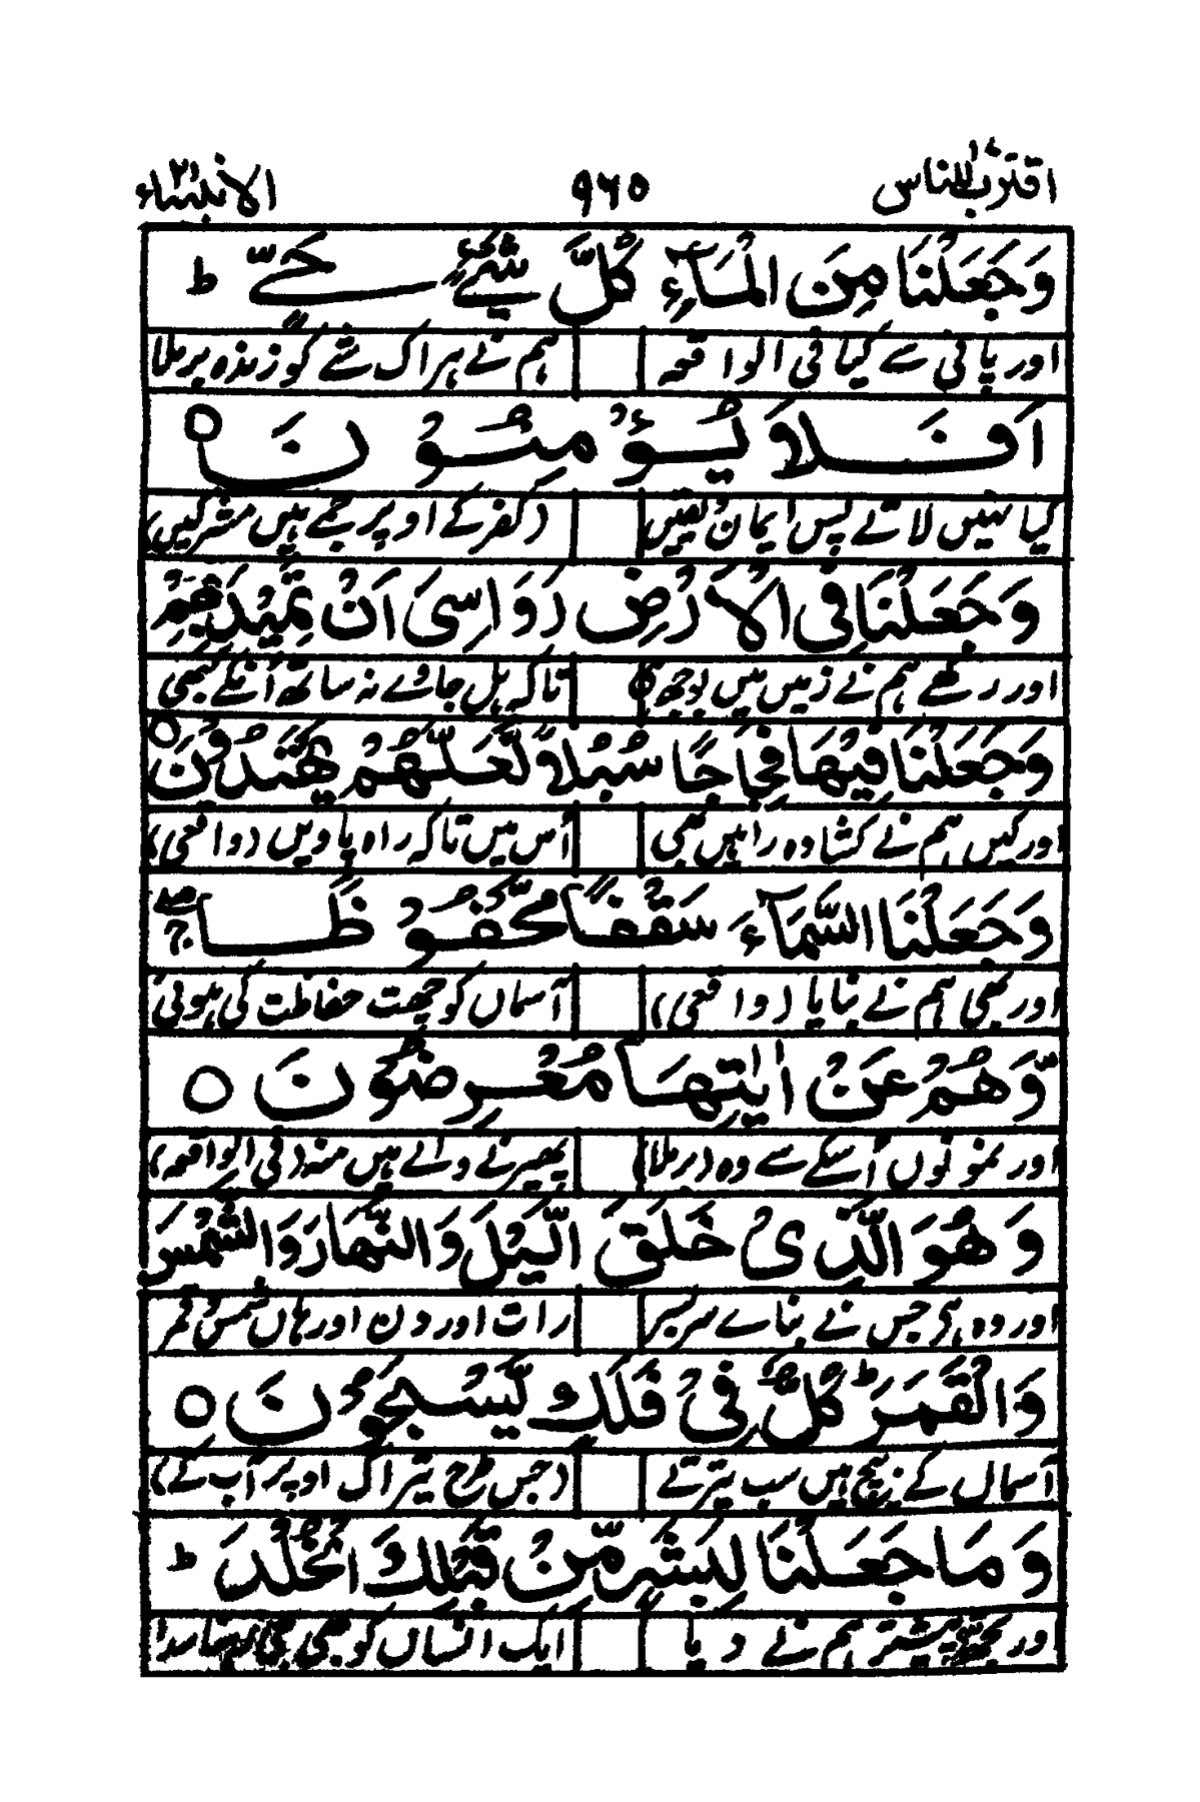 اقترب للناس ١٧
٩٦٥
الانبیاء ٢١
وَجَعَلْنَا مِنَ الْمَآءِ كُلَّ شَیْءٍ حَیٍّ ط
اور پانی سے کیا فی الواقعہ ہم نے ہر اک شے کو زندہ برملا
اَفَلَا یُؤْمِنُوْنَ ○
کیا نہیں لاتے پس ایمان یہیں (کفر کے اوپر جمے ہیں مشرکیں)
وَجَعَلْنَا فِی الْاَرْضِ رَوَاسِیَ اَنْ تَمِیْدَ بِهِمْ
اور رکھے ہم نے زمیں میں بوجھ تاکہ ہل جاوے نہ ساتھ اُنکے کبھی
وَجَعَلْنَا فِیْهَا فِجَاجًا سُبُلًا لَّعَلَّهُمْ یَهْتَدُوْنَ ○
اور کیں ہم نے کشادہ راہیں بھی اُس میں تاکہ راہ پاویں (واقعی)
وَجَعَلْنَا السَّمَآءَ سَقْفًا مَّحْفُوْظًا
اور بھی ہم نے بنایا (واقعی) آسماں کو چھت حفاظت کی ہوئی
وَّهُمْ عَنْ اٰیٰتِهَا مُعْرِضُوْنَ ○
اور نمونوں اُسکے سے وہ (برملا) پھیرنے والے ہیں منہ (فی الواقعہ)
وَهُوَ الَّذِیْ خَلَقَ الَّیْلَ وَالنَّهَارَ وَالشَّمْسَ
اور وہ ہی جس نے بنائے سربسر رات اور دن اور ہاں شمس قمر
وَالْقَمَرَ ط كُلٌّ فِیْ فَلَكٍ یَّسْبَحُوْنَ ○
آسماں کے بیچ ہیں سب تیرتے (جس طرح تیراک اوپر آب کے)
وَمَا جَعَلْنَا لِبَشَرٍ مِّنْ قَبْلِكَ الْخُلْدَ ط
ور پیشتر ہم نے دیا ایک انساں کو بھی سدا